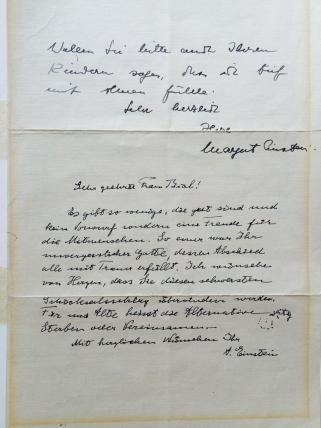 Wollen Sie bitte auch Ihren
Kindern sagen, dass ich tief
mit Ihnen fühle.
Sehr herzlich
Ihre
Margot Einstein.
Sehr geehrte Frau
Es gibt so wenige, die gut sind und
kein Vorwurf sondern eine Freude für
die Mitmenschen. So einer war Ihr
unvergesslicher Gatte, dessen Abschied
alle mit Trauer erfüllt. Ich wünsche
von Herzen, dass Sie diesen schwersten
Schicksalsschlag überwinden werden.
Für uns Alte heisst die Alternative
Sterben oder Vereinsamen.
Mit herzlichen Wünschen Ihr
A. Einstein